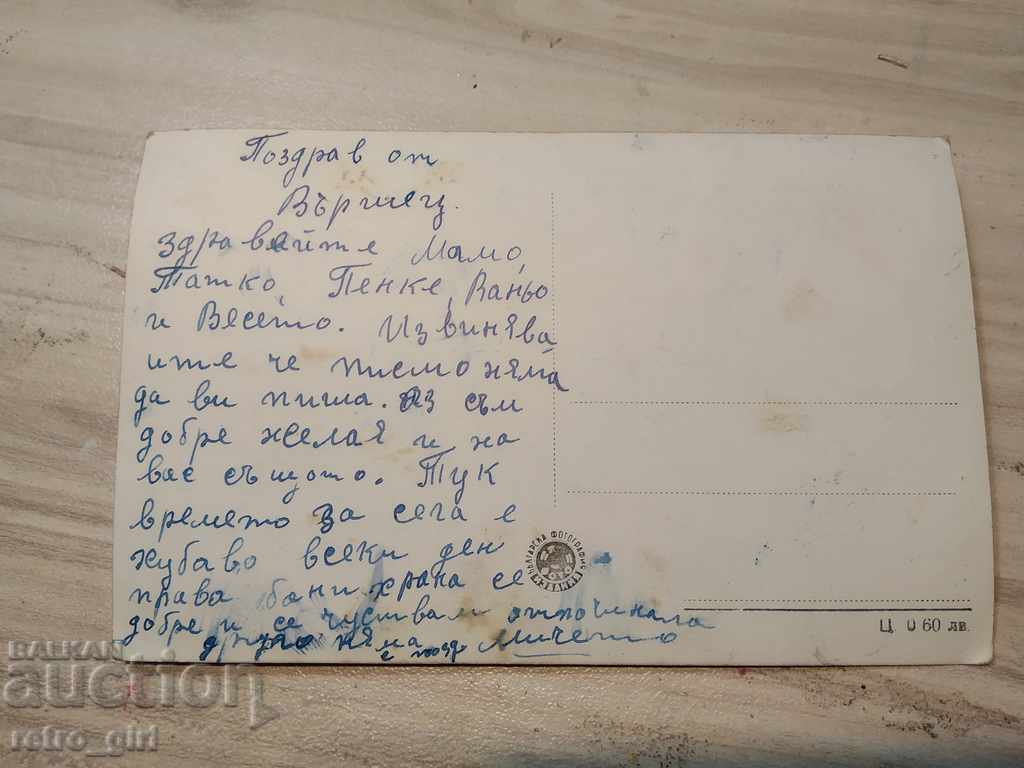 Поздрав от
Вършец.
здравейте Мамо,
Татко, Пенке, Ваньо
и Весето. Извинява
ите че писмо няма
да ви пиша. Аз съм
добре желая и на
вас същото. Тук
времето за сега е
хубаво всеки ден
права бани храна се
добре и се чуствам отпочинала
друго няма с позд Мичето
БЪЛГАРСКА ФОТОГРАФИЯ
Ц 0 60 лв.
BALKAN
auction
retro_girl